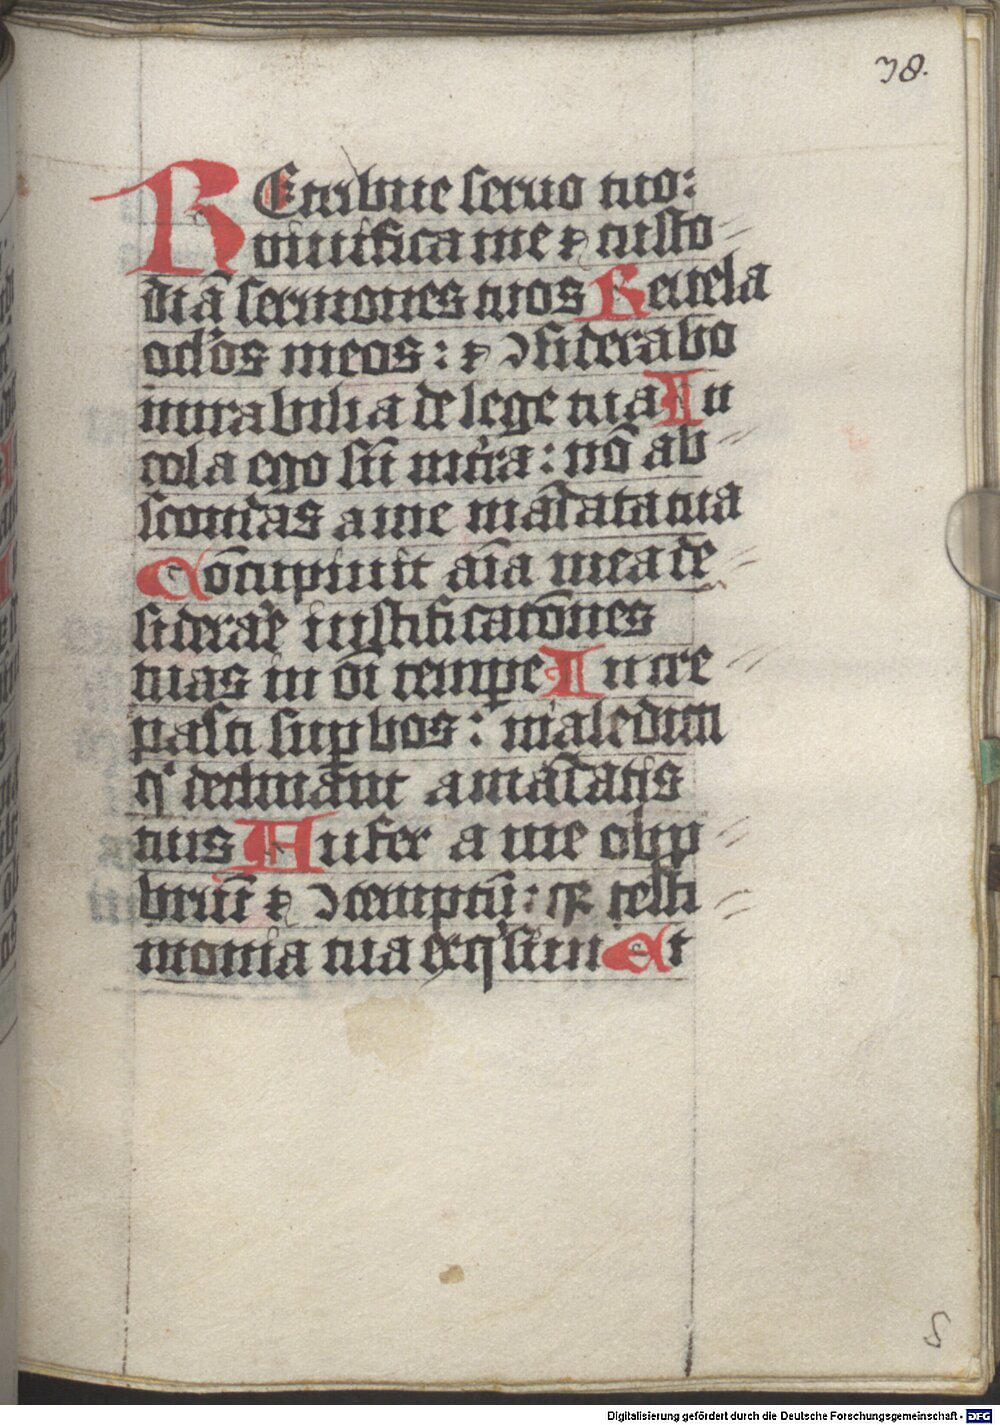 38.
REtribue seruo tuo:
viuifica me ⁊ custo⸗
diā sermones tuos Reuela
oclos meos: ⁊ ↄsiderabo
mirabilia de lege tua In
cola ego sū in tr̄a: nō ab⸗
scondas a me mādata tua
Cōcupiuit aīa mea de⸗
siderae iustificatōnes
tuas in oī tempe Incre⸗
pasti supbos: maledicti
q declinant a mādatis
tuis Aufer a me obp⸗
briū ⁊ ↄtemptū: qr testi⸗
monia tua exqsiui Et
S
Digitalisierung gefördert durch die Deutsche Forschungsgemeinschaft - DFG